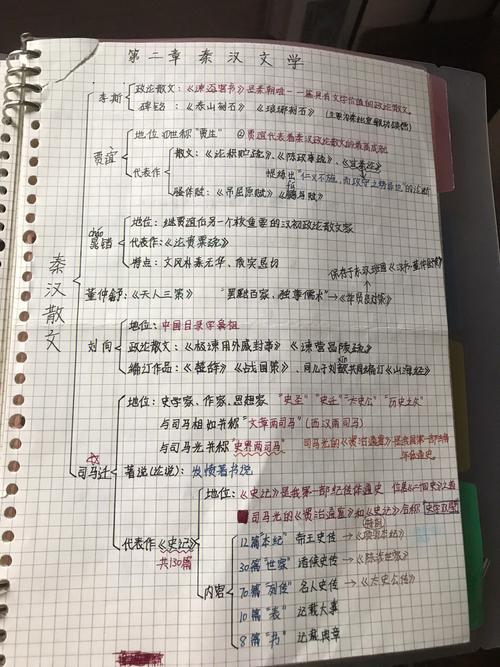 第二章秦汉文学
秦汉散文
李斯
政论散文：《谏逐客书》是秦朝唯一一篇具有文学价值的政论散文。
碑铭：《泰山刻石》《琅琊刻石》
贾谊
地位：①世称"贾生" ②贾谊代表着秦汉政论散文的最高成就
代表作
散文：《论积贮疏》、《陈政事疏》、《过秦论》
提出"仁义不施，而攻守之势异也"的论断
骚体赋：《吊屈原赋》《鵩鸟赋》
fú
cháo
晁错
地位：继贾谊后另一个极重要的汉初政论散文家
代表作：《论贵粟疏》
特点：文风朴素无华、质实恳切
保存于东汉班固《汉书·董仲舒传》
董仲舒：《天人三策》 "罢黜百家，独尊儒术" → 《举贤良对策》
刘向
地位：中国目录学鼻祖
政论散文：《极谏用外戚封事》《谏营昌陵疏》
xīn
编订作品：《楚辞》《战国策》、同儿子刘歆共同编订《山海经》
司马迁
地位：史学家、作家、思想家 "史圣" "史迁" "太史公" "历史之父"
与司马相如并称"文章两司马"（西汉两司马）
与司马光并称"史界两司马" 司马光的《资治通鉴》是我国第一部编年体通史
著说（论说）：发愤著书说
代表作《史记》
共130篇
地位：《史记》是我第一部纪传体通史 位居《二十四史》之首
司马光的《资治通鉴》和《史记》合称"史学双璧"
内容
12篇"本纪" 帝王史传 → 《项羽本纪》
30篇"世家" 诸侯史传 → 《陈涉世家》
70篇"列传" 名人史传 →
10篇"表" 记载大事
8篇"书" 记载典章